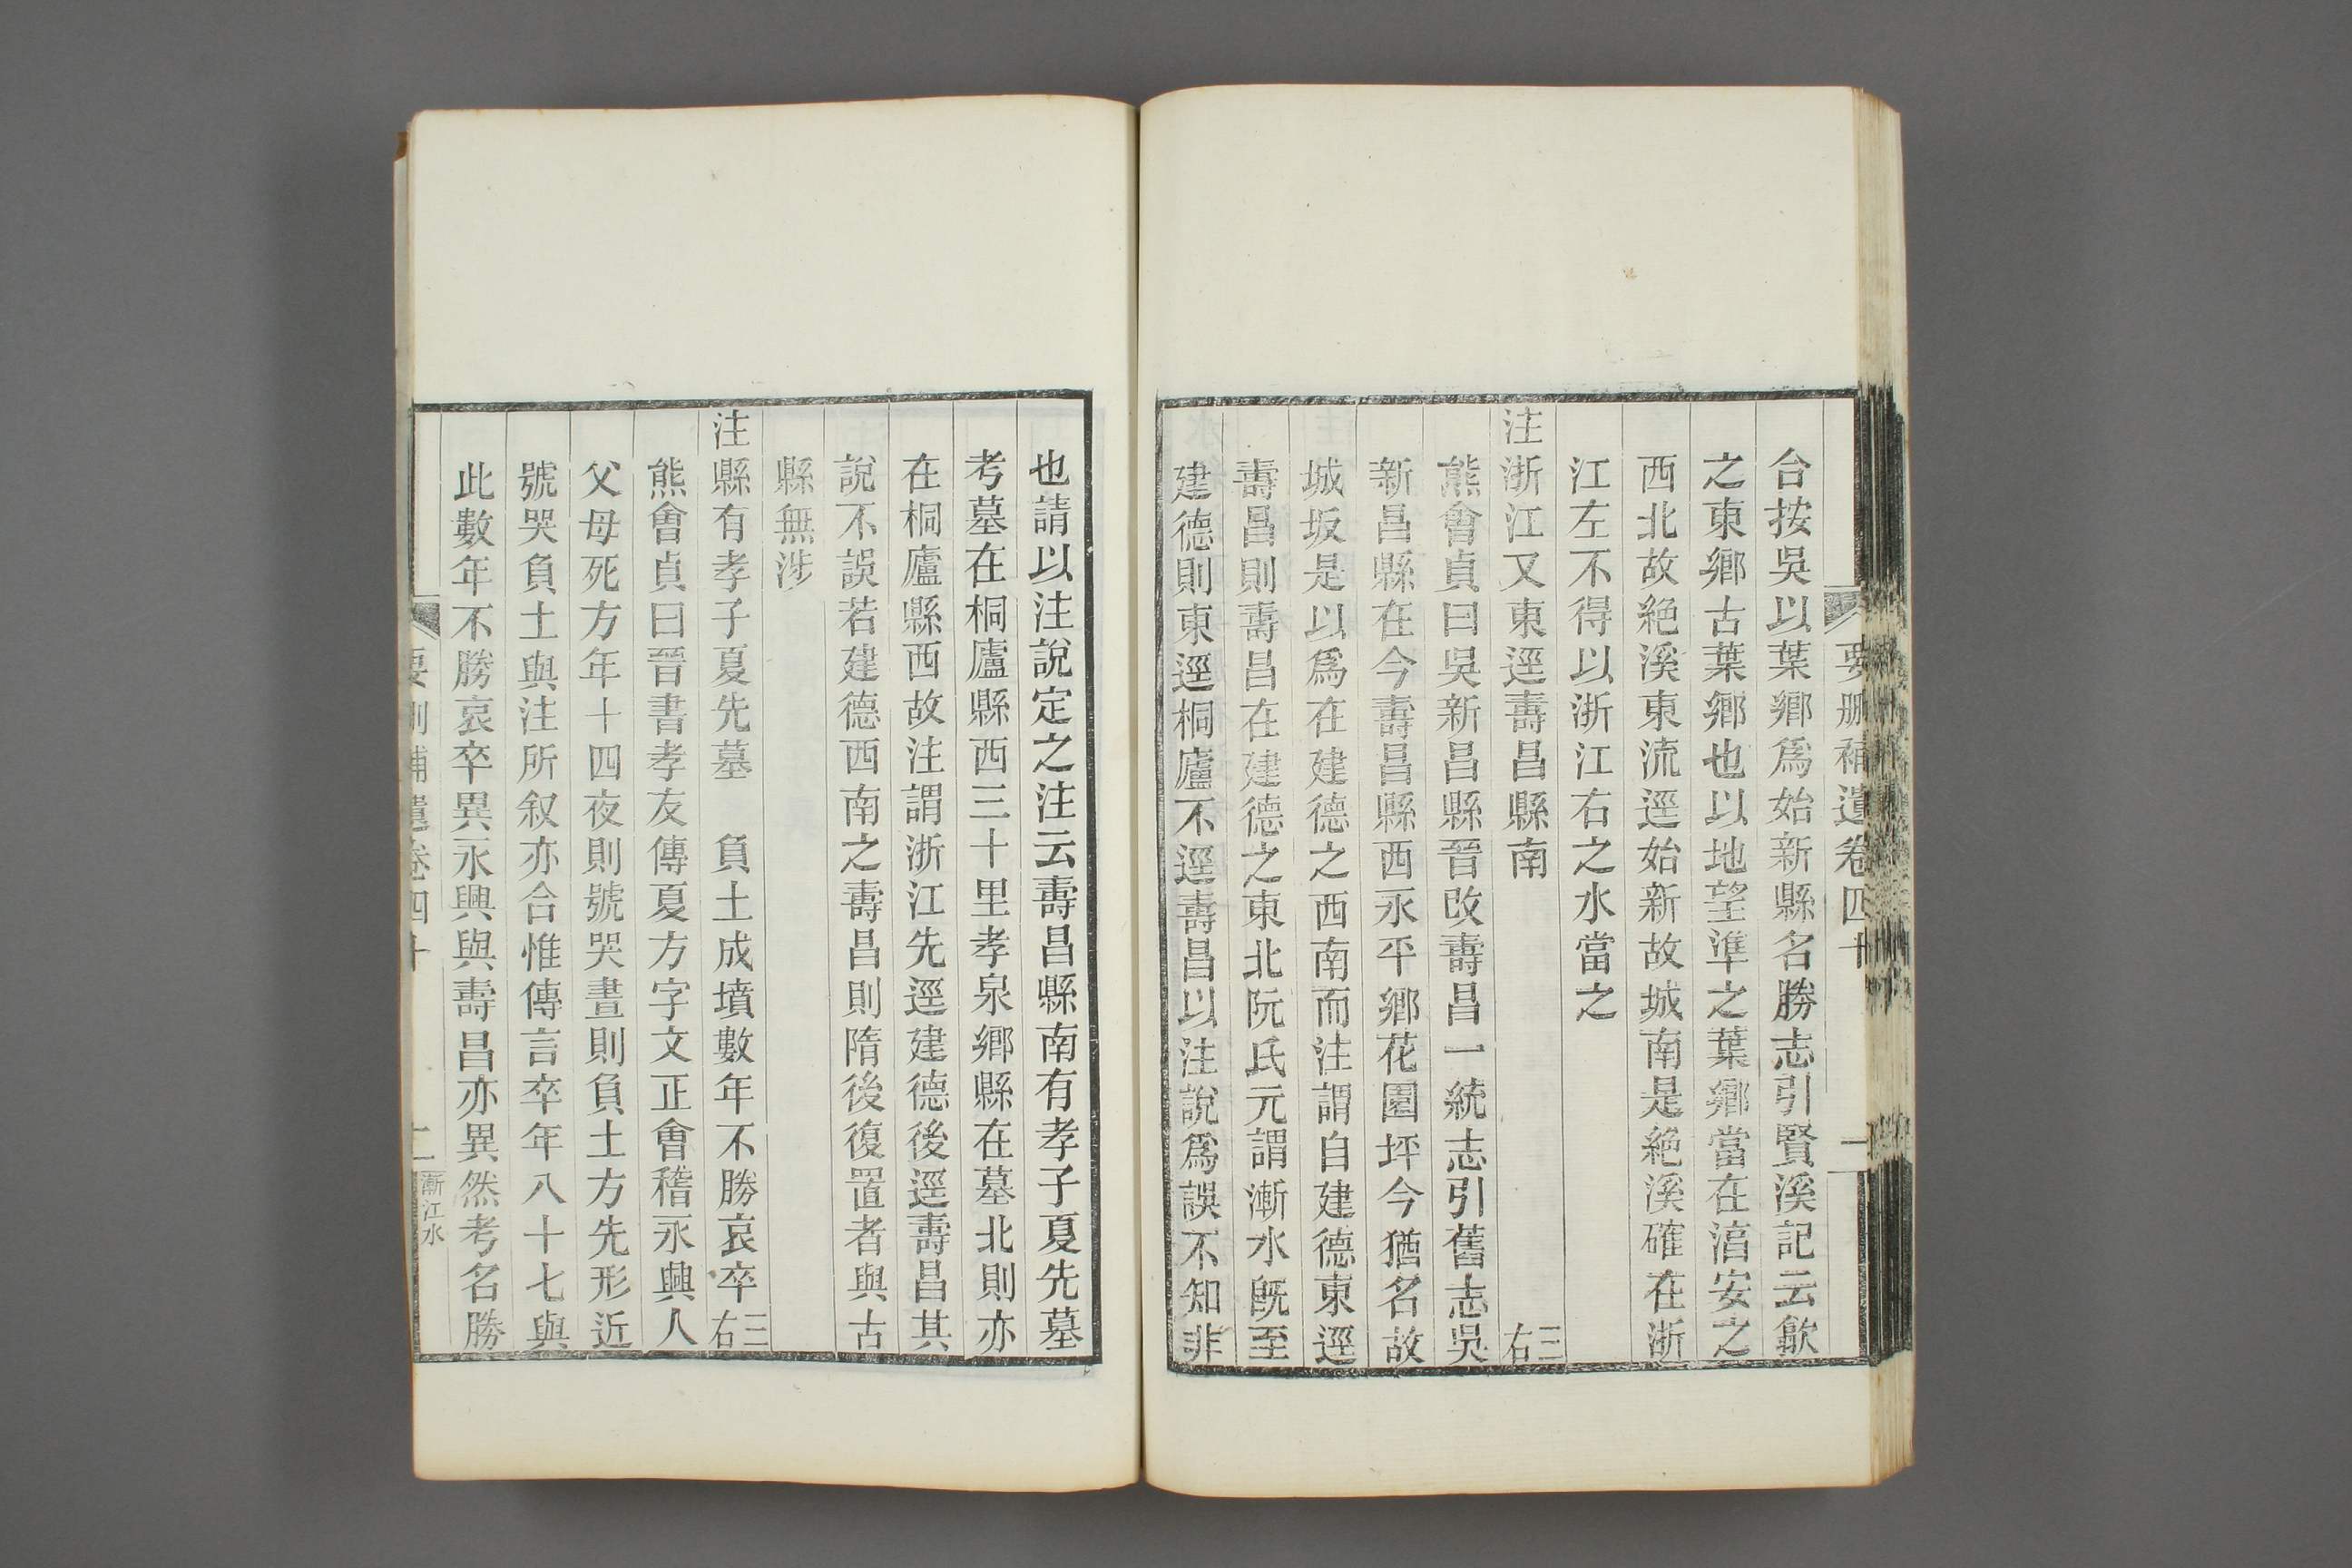 要刪補遺卷四十
一
合按吳以葉鄉爲始新縣名勝志引賢溪記云歙
之東鄉古葉鄉也以地望準之葉鄉當在湻安之
西北故絶溪東流逕始新故城南是絶溪確在浙
江左不得以浙江右之水當之
注浙江又東逕壽昌縣南
三右
熊會貞曰吳新昌縣晉改壽昌一統志引舊志吳
新昌縣在今壽昌縣西永平鄉花園坪今猶名故
城坂是以爲在建德之西南而注謂自建德東逕
壽昌則壽昌在建德之東北阮氏元謂漸水旣至
建德則東逕桐廬不逕壽昌以注說爲誤不知非
也請以注說定之注云壽昌縣南有孝子夏先墓
考墓在桐廬縣西三十里孝泉鄉縣在墓北則亦
在桐廬縣西故注謂浙江先逕建德後逕壽昌其
說不誤若建德西南之壽昌則隋後復置者與古
縣無涉
注縣有孝子夏先墓　負土成墳數年不勝哀卒
三右
熊會貞曰晉書孝友傳夏方字文正會稽永興人
父母死方年十四夜則號哭晝則負土方先形近
號哭負土與注所叙亦合惟傳言卒年八十七與
此數年不勝哀卒異永興與壽昌亦異然考名勝
要刪補遺卷四十
二
漸江水